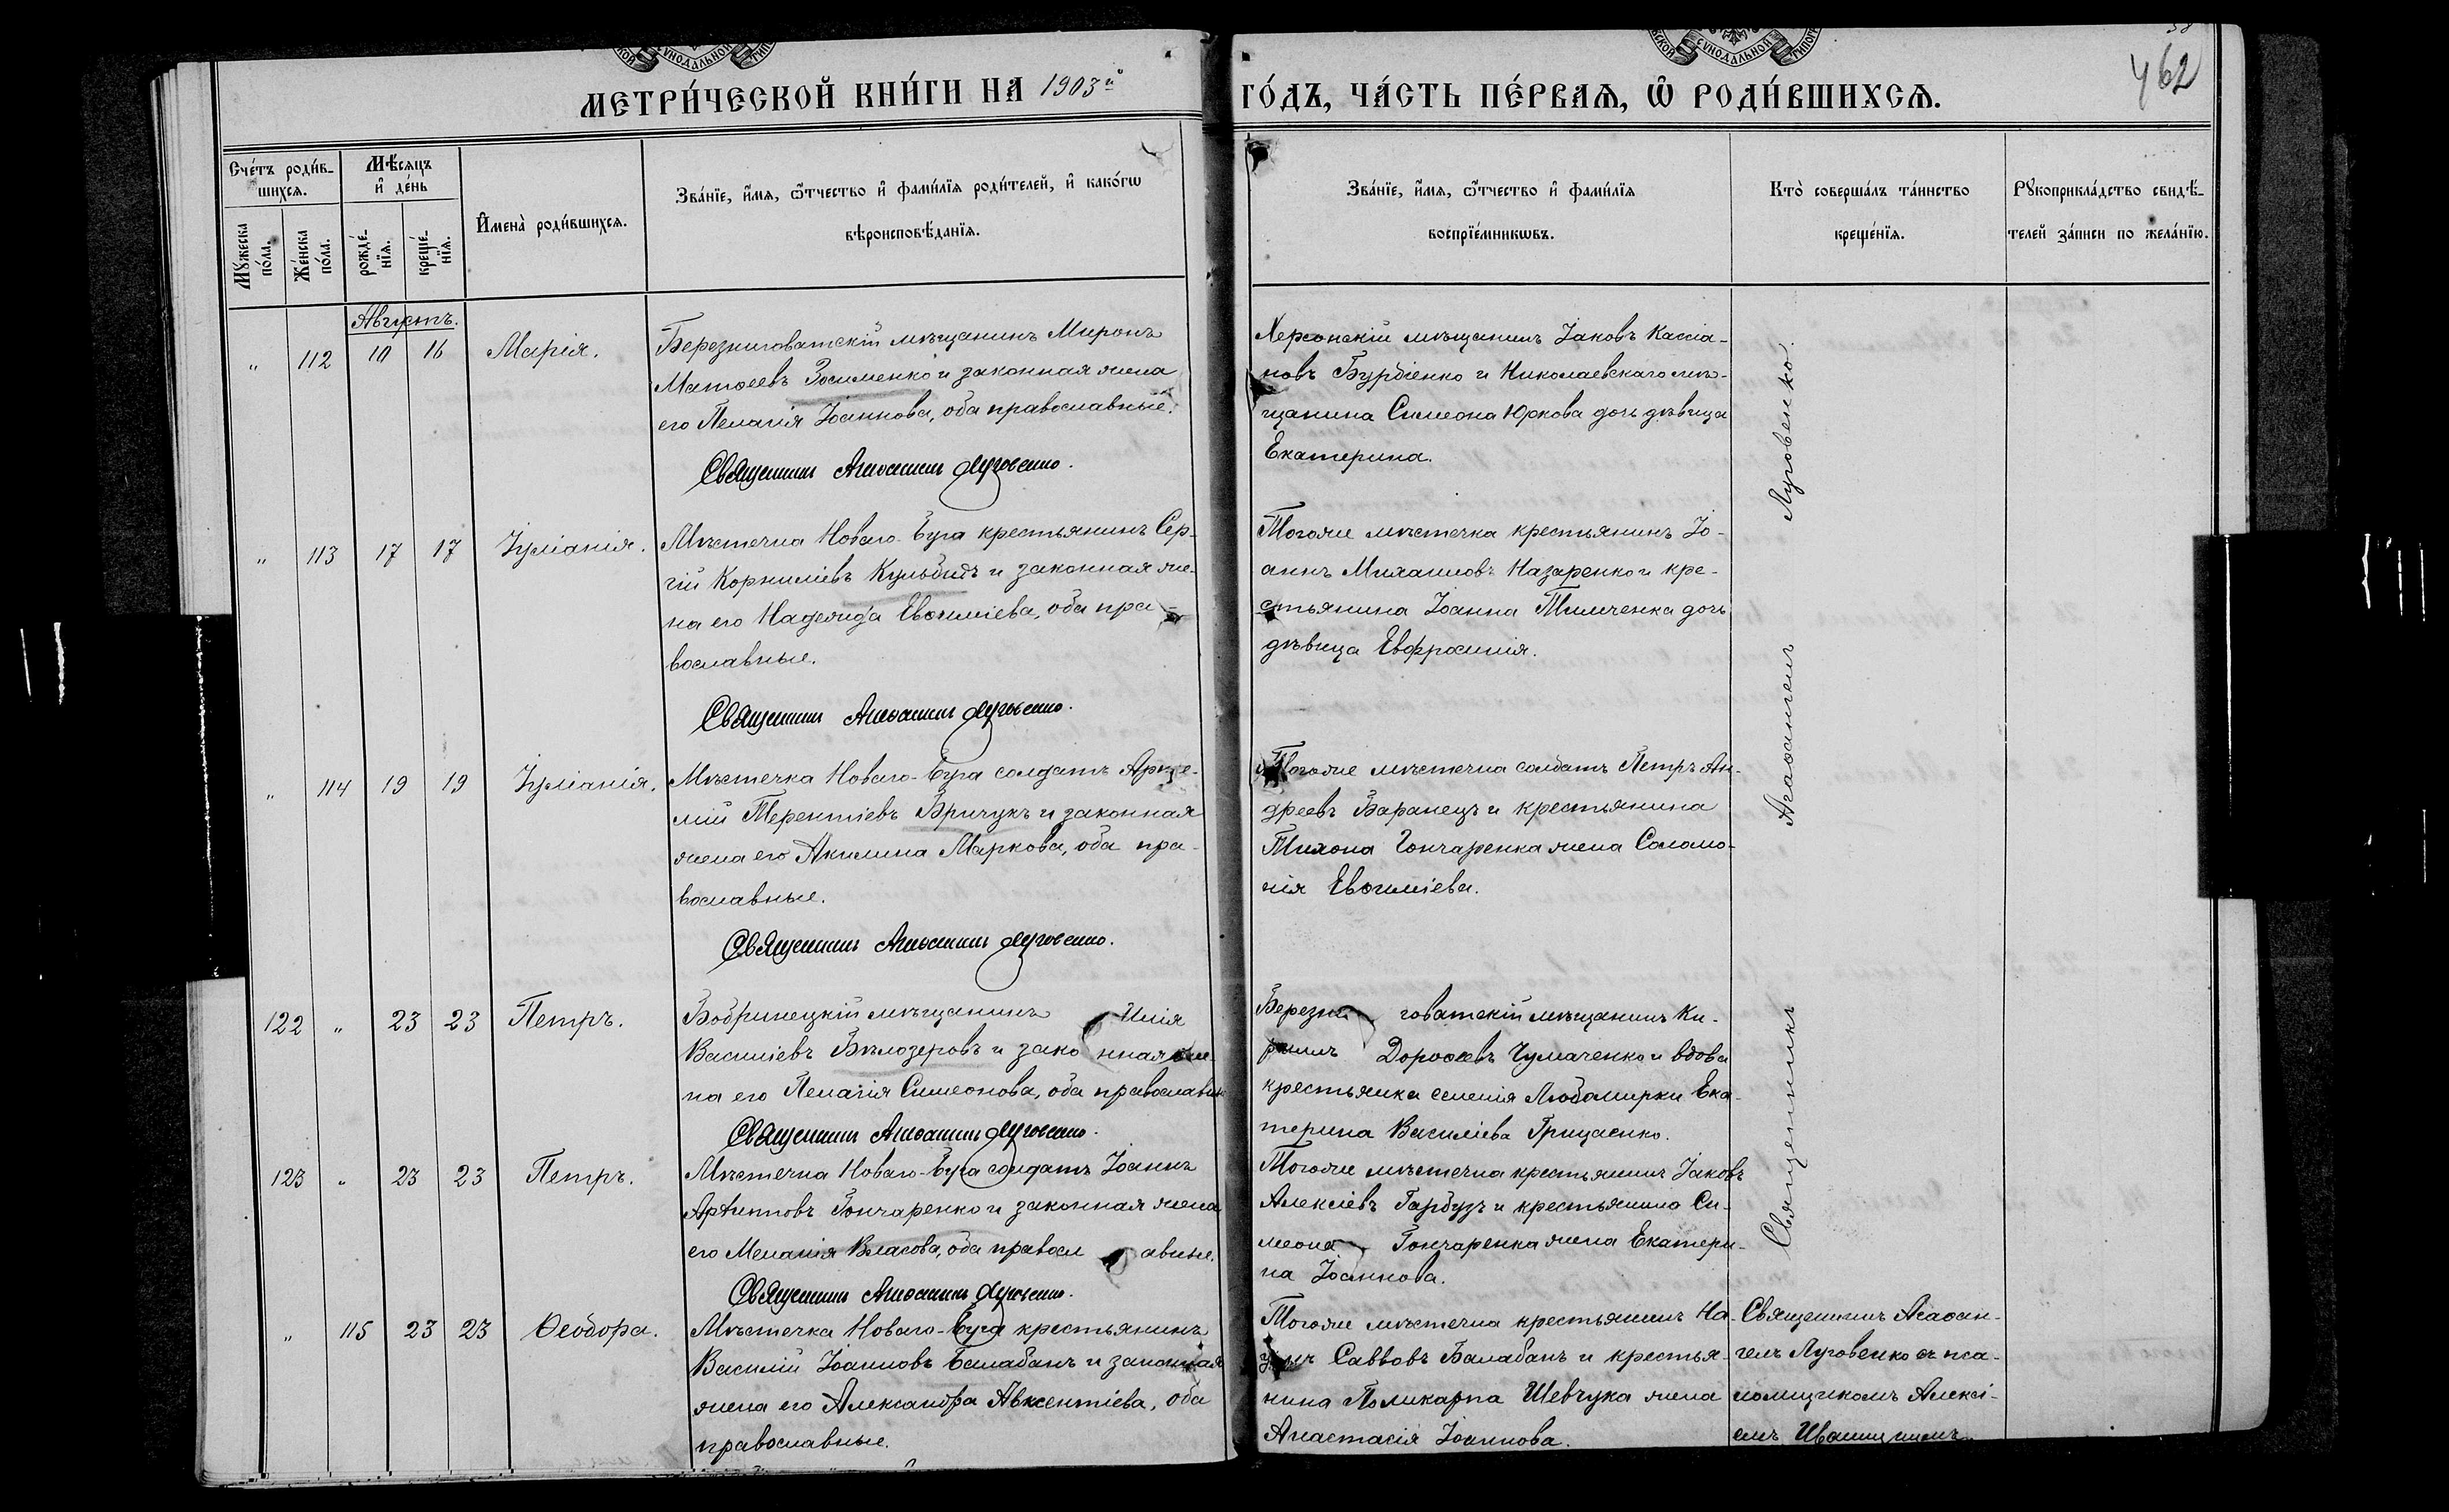 МЕТРИ́ЧЕСКОЙ КНИ́ГИ НА 1903й
ГО́ДЪ, ЧА́СТЬ ПЕ́РВАѦ, Ѿ РОДИ́ВШИХСѦ.
462
Сче́тъ роди́в-
шихсѧ.
Мѣ́сѧцъ
и҆ де́нь
Мꙋ́жеска
по́ла.
Же́нска
по́ла.
рожде́-
нїѧ.
креще́-
нїѧ.
И҆мена̀ роди́вшихсѧ.
Зва́нїе, и҆́мѧ, ѻ҆́тчество и҆ фами́лїѧ роди́телей, и҆ како́гѡ
вѣроисповѣ́данїѧ.
Зва́нїе, и҆́мѧ, ѻ҆́тчество и҆ фами́лїѧ
воспрїе́мникѡвъ.
Кто̀ соверша́лъ та́инство
креще́нїѧ.
Рꙋкоприкла́дство свидѣ́-
телей за́писи по жела́нїю.
Августъ.
" 112 10 16 Марія.
Березниговатскій мѣщанинъ Миронъ
Матѳеевъ Зосименко и законная жена
его Пелагія Іоаннова, оба православные.
Священникъ Агаѳангелъ Луговенко.
Херсонскій мѣщанинъ Іаковъ Кассіа-
новъ Бурдіенко и Николаевскаго мѣ-
щанина Симеона Юркова дочь дѣвица
Екатерина.
" 113 17 17 Іуліанія.
Мѣстечка Новаго-Буга крестьянинъ Сер-
гій Корниліевъ Кульбидъ и законная же-
на его Надежда Евѳиміева, оба пра-
вославные.
Священникъ Агаѳангелъ Луговенко.
Тогоже мѣстечка крестьянинъ Іо-
аннъ Михаиловъ Назаренко и кре-
стьянина Іоанна Тимченка дочь
дѣвица Евфросинія.
" 114 19 19 Іуліанія.
Мѣстечка Новаго-Буга солдатъ Арте-
мій Терентіевъ Бричукъ и законная
жена его Акилина Маркова, оба пра-
вославные.
Священникъ Агаѳангелъ Луговенко.
Тогоже мѣстечка солдатъ Петръ Ан-
дреевъ Баранецъ и крестьянина
Тихона Гончаренка жена Соломо-
нія Евѳиміева.
122 " 23 23 Петръ.
Бобринецкій мѣщанинъ Илія
Василіевъ Бѣлозеровъ и законная же-
на его Пелагія Симеонова, оба православн
Священникъ Агаѳангелъ Луговенко.
Березниговатскій мѣщанинъ Ки-
риллъ Дороѳеевъ Чумаченко и вдова
крестьянка селенія Любомирки Ека-
терина Василіева Грищенко.
123 " 23 23 Петръ.
Мѣстечка Новаго-Буга солдатъ Іоаннъ
Архиповъ Гончаренко и законная жена
его Меланія Власова, оба православные.
Священникъ Агаѳангелъ Луговенко.
Тогоже мѣстечка крестьянинъ Іаковъ
Алексіевъ Гарбузъ и крестьянина Си-
меона Гончаренка жена Екатери-
на Іоаннова.
Священникъ Агаѳангелъ Луговенко.
" 115 23 23 Ѳеодора.
Мѣстечка Новаго-Буга крестьянинъ
Василій Іоанновъ Балабанъ и законная
жена его Александра Авксентіева, оба
православные.
Тогоже мѣстечка крестьянинъ На-
умъ Саввовъ Балабанъ и крестья-
нина Поликарпа Шевчука жена
Анастасія Іоаннова.
Священникъ Агаѳан-
гелъ Луговенко съ пса-
ломщикомъ Алексі-
емъ Иваницкимъ